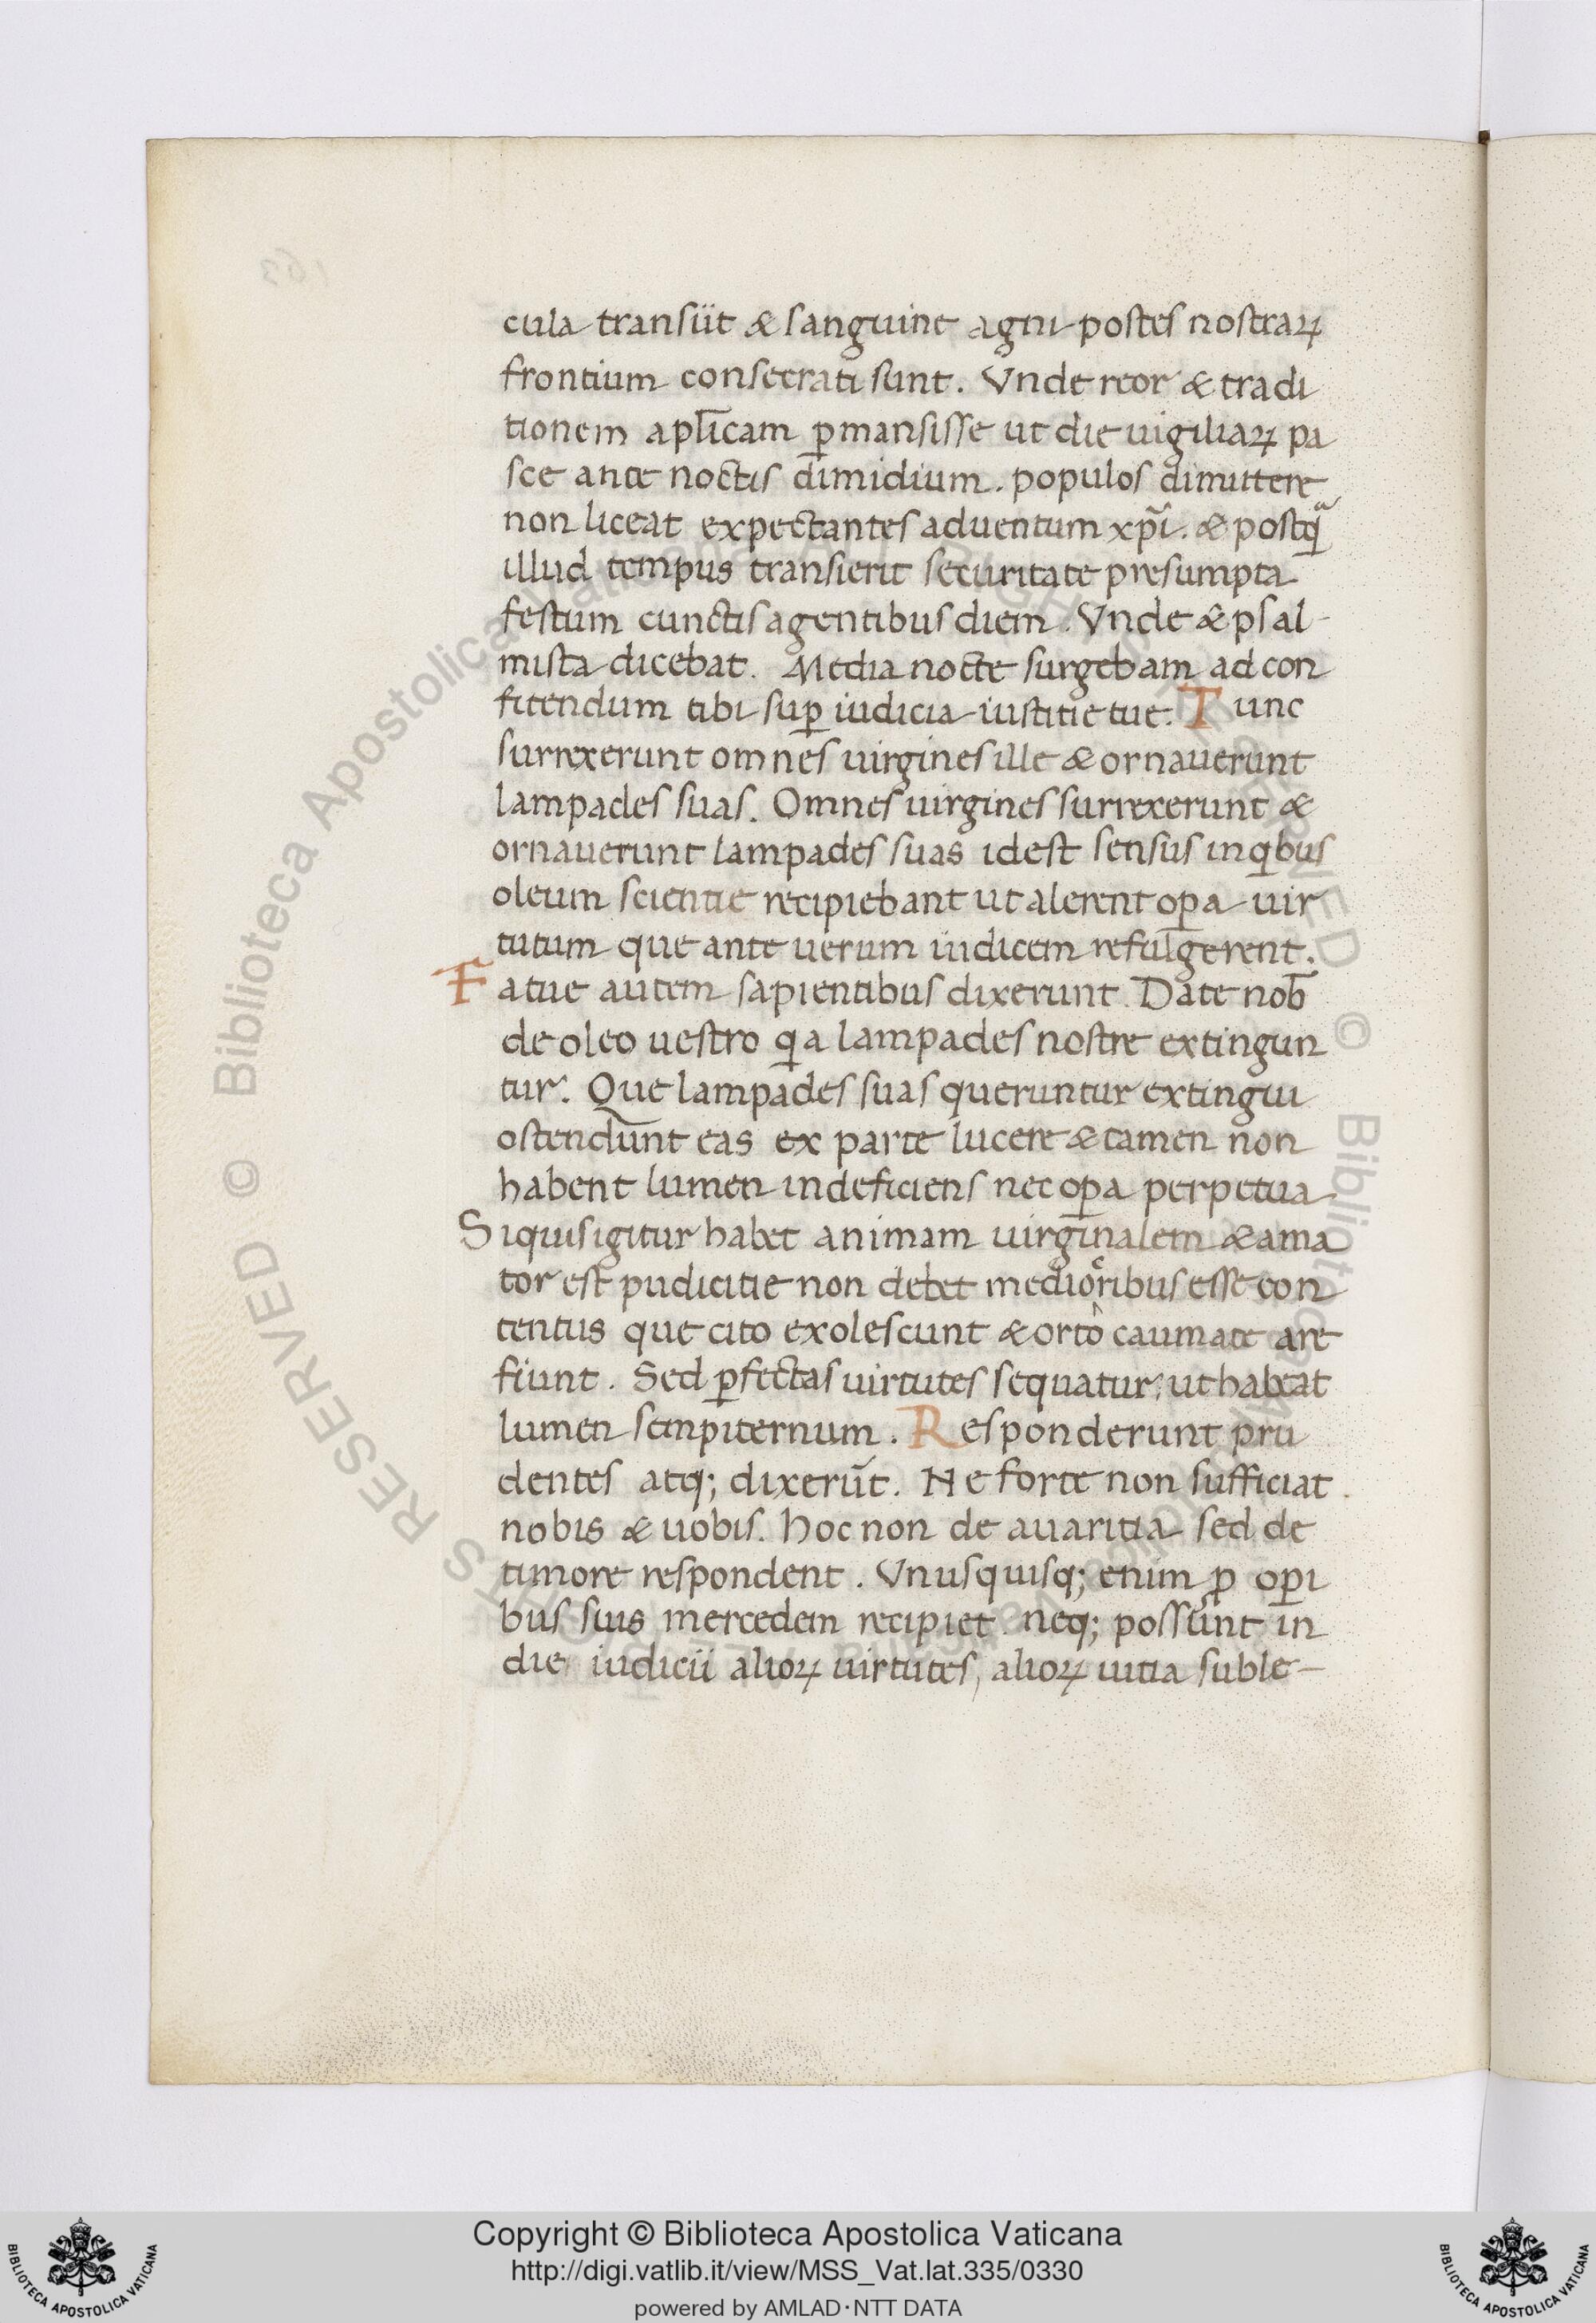 cula transiit & sanguine agni postes nostraꝝ
frontium consecrati sunt. Vnde reor & tradi
tionem apl̅icam ꝑmansisse ut die uigiliaꝝ pa
sce ante noctis dimidium. populos dimittere
non liceat expectantes aduentum xp̅i. & postqᷓ
illud tempus transierit securitate presumpta
festum cunctis agentibus diem. Vnde & psal-
mista dicebat. Media nocte surgebam ad con
fitendum tibi suꝑ iudicia iustitie tue. Tunc
surrexerunt omnes uirgines ille & ornauerunt
lampades suas. Omnes uirgines surrexerunt &
ornauerunt lampades suas idest sensus in qͥbus
oleum scientie recipiebant ut alerent oꝑa uir
tutum que ante uerum iudicem refulgerent.
Fatue autem sapientibus dixerunt. Date nob̅
de oleo uestro qͥa lampades nostre extingun
tur. Que lampades suas queruntur extingui
ostendunt eas ex parte lucere & tamen non
habent lumen indeficiens nec oꝑa perpetua
Siquis igitur habet animam uirginalem & ama
tor est pudicitie non debet mediocribus esse con
tentus que cito exolescunt & orto caumate are
fiunt. Sed ꝑfectas uirtutes sequatur, ut habeat
lumen sempiternum. Responderunt pru
dentes atq; dixerūt. Ne forte non sufficiat
nobis & uobis. hoc non de auaritia sed de
timore respondent. Vnusquisq; enim ꝓ oꝑi
bus suis mercedem recipiet. neq; possunt in
die iudicii alioꝝ uirtutes, alioꝝ uitia suble-
Copyright © Biblioteca Apostolica Vaticana
http://digi.vatlib.it/view/MSS_Vat.lat.335/0330
powered by AMLAD·NTT DATA
BIBLIOTECA APOSTOLICA VATICANA
BIBLIOTECA APOSTOLICA VATICANA